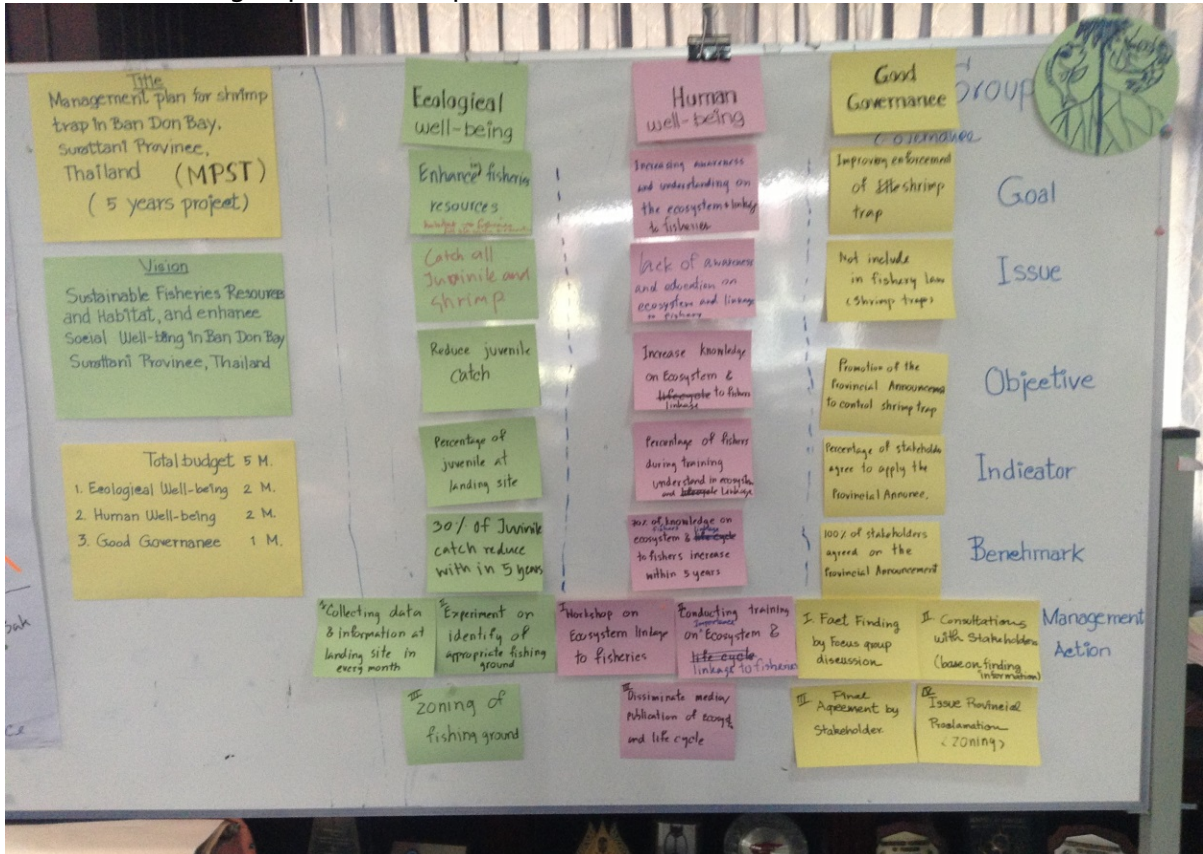 Title
Management plan for shrimp
trap in Ban Don Bay,
Surattani Province,
Thailand (MPST)
( 5 years project)
Vision
Sustainable Fisheries Resources
and Habitat, and enhance
Social Well-being in Ban Don Bay
Surattani Province, Thailand
Total budget 5 M.
1. Ecological Well-being 2 M.
2. Human Well-being 2 M.
3. Good Governance 1 M.
Ecological
well-being
Enhance fisheries
resources
Catch all
Juvinile and
shrimp
Reduce juvenile
Catch
Percentage of
juvenile at
landing site
30% of Juvinile
catch reduce
with in 5 years
I Collecting data
& information at
landing site in
every month
II Experiment on
identify of
appropriate fishing
ground
III
zoning of
fishing ground
Human
well-being
Increasing awareness
and understanding on
the ecosystem & linkage
to fisheries
lack of awareness
and education on
ecosystem and linkage
to fishery
Increase knowledge
on Ecosystem &
lifecycle to fishers
linkage
Percentage of fishers
during training
understand in ecosystem
and lifecycle Linkage
30% of knowledge on
fishers linkage
ecosystem & life cycle
to fishers increase
within 5 years
I Workshop on
Ecosystem linkage
to fisheries
II Conducting training
Importance
on Ecosystem &
life cycle
linkage to fisheries
III Dissiminate media/
publication of
and life cycle
Good
Governance
Group
Governance
Improving enforcement
of shrimp
trap
Not include
in fishery law
(shrimp traps)
Promotion of the
Provincial Announcement
to control shrimp trap
Percentage of stakeholder
agree to apply the
Provincial Announce.
100% of stakeholders
agreed on the
Provincial Announcement
I. Fact Finding
by Focus group
discussion
II. Consultations
with Stakeholders
(base on finding
information)
III Final
Agreement by
Stakeholder
IV Issue Provincial
Proclamation
(zoning)
Goal
Issue
Objective
Indicator
Benchmark
Management
Action